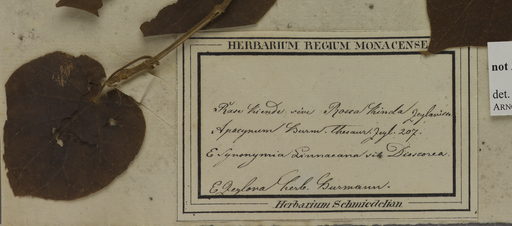 HERBARIUM REGIUM MONACENSE
Rase kiende sive Rassa kinda Zeylanica
Apocynum Burm. Thesaur. Zeyl. 207.
E Synonymia Linnaeana sit Dioscorea.
E Zeylona herb. Burmann.
Herbarium Schmiedelian
not
det.
ARNO